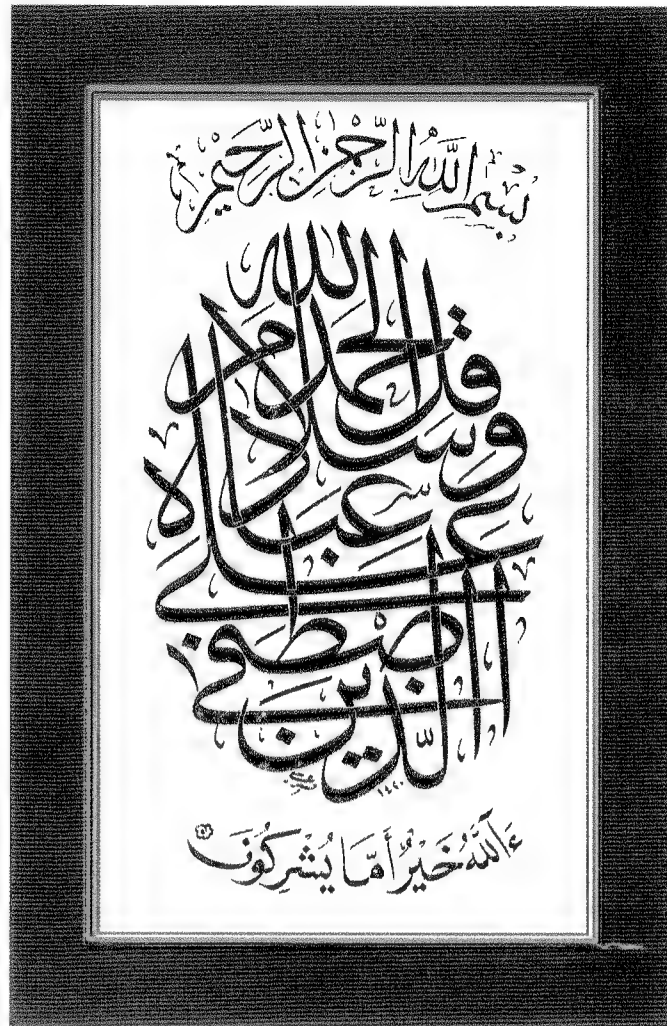 بِسْمِ اللَّهِ الرَّحْمَنِ الرَّحِيمِ
قل الحمد لله
وسلام
على عباده
الذين اصطفى
١٤٤٠
ءَآللَّهُ خَيْرٌ أَمَّا يُشْرِكُونَ ٥٩